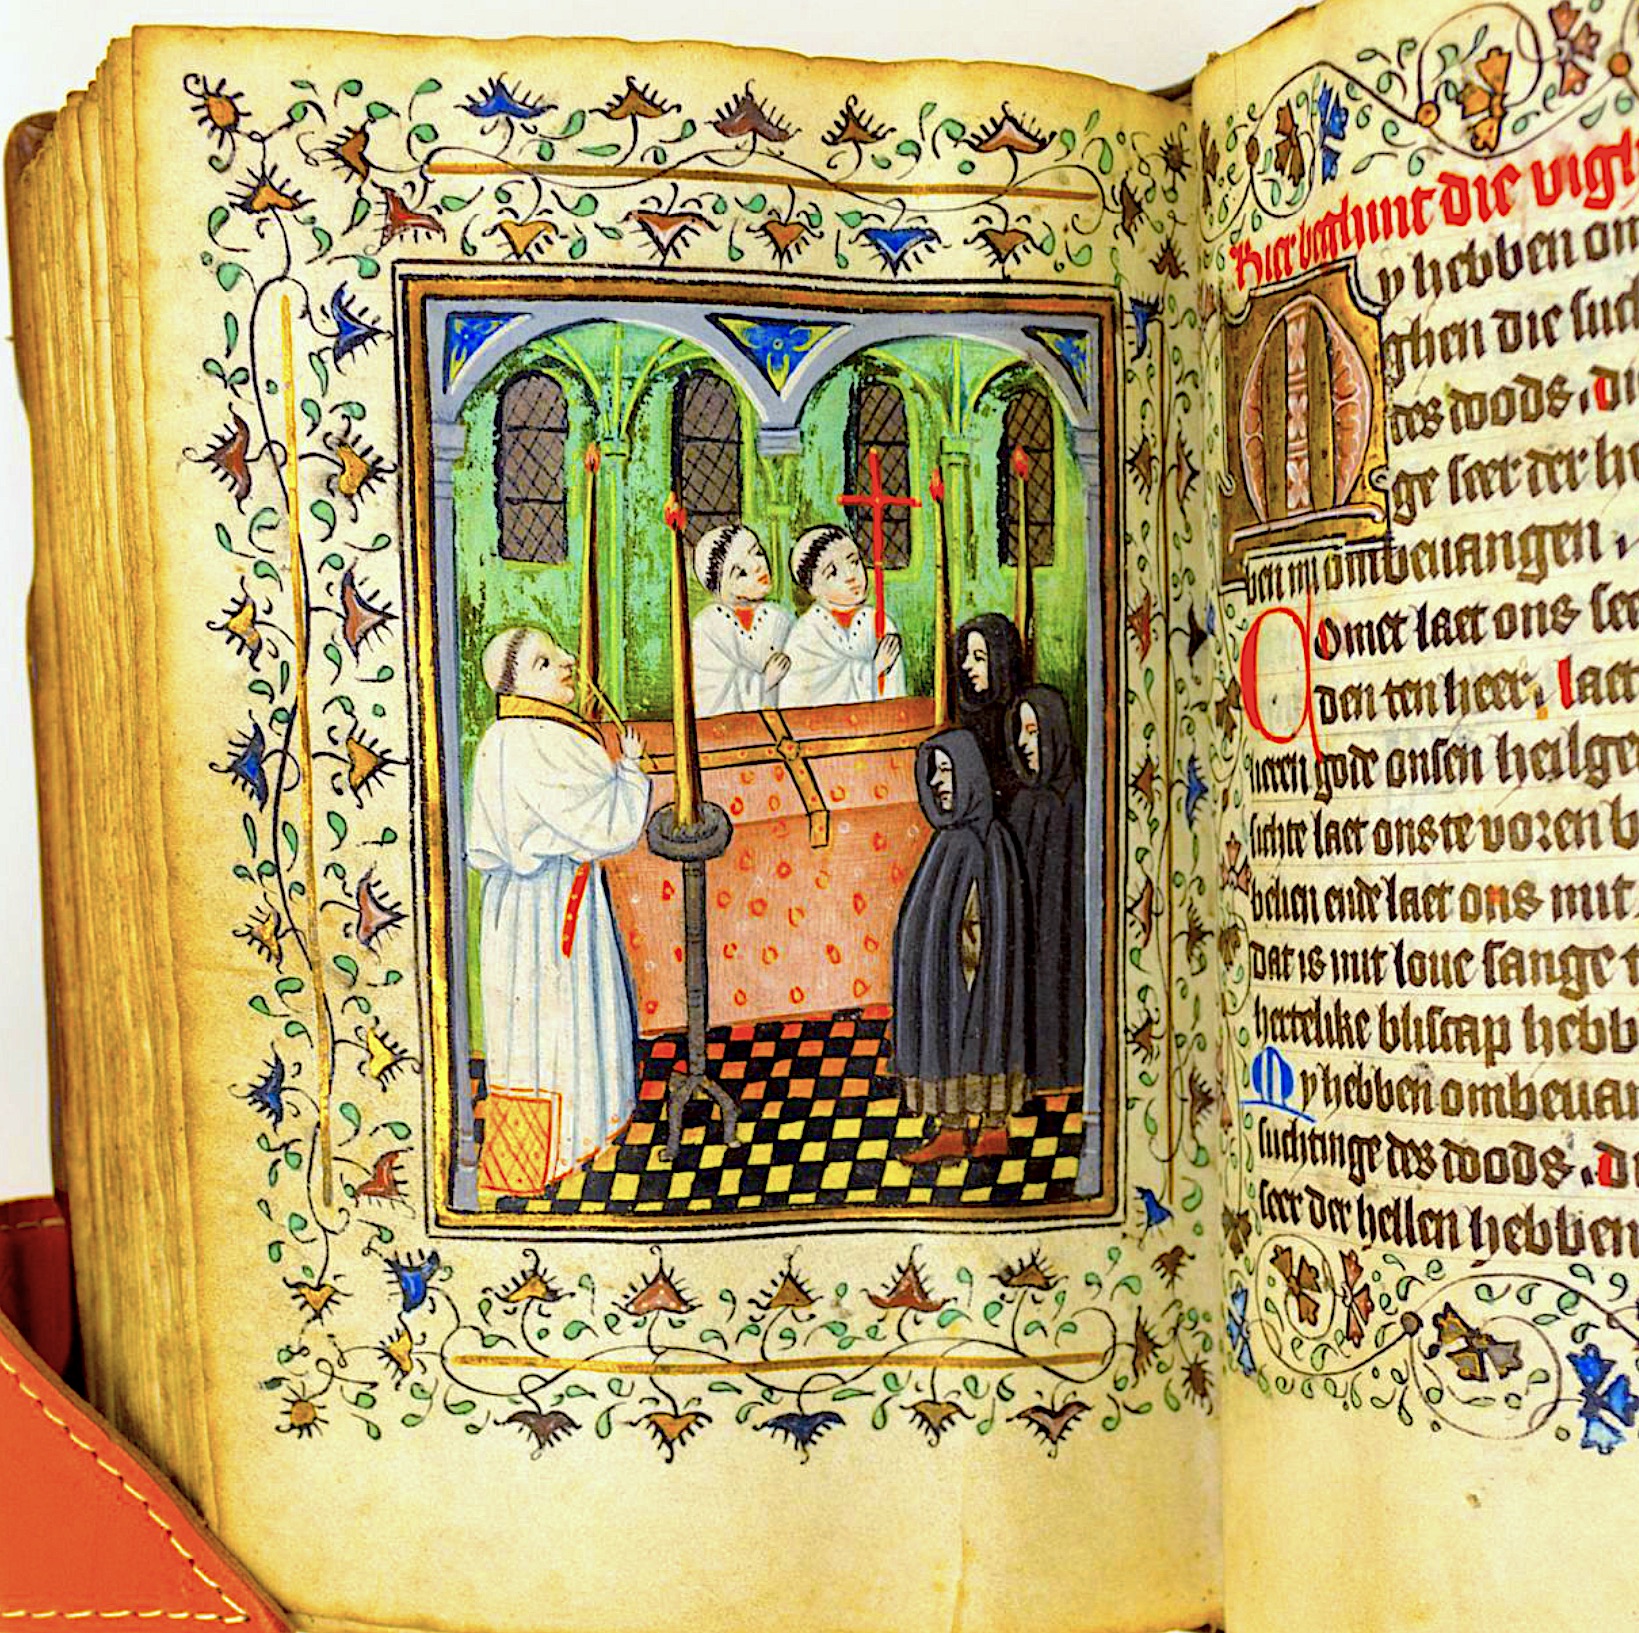 Hier beghint die vigh
My hebben om
ghen die such
des doods. Di
ge seer der he
ben mi ombeuangen.
Comet laet ons see
den ten heer, laet
heren gode onsen heilge
sichte laet ons te voren b
belien ende laet ons mit
dat is mit loue sange
hertelike bliscap hebb
My hebben ombeuan
suchtinge des doods. Di
seer der hellen hebben